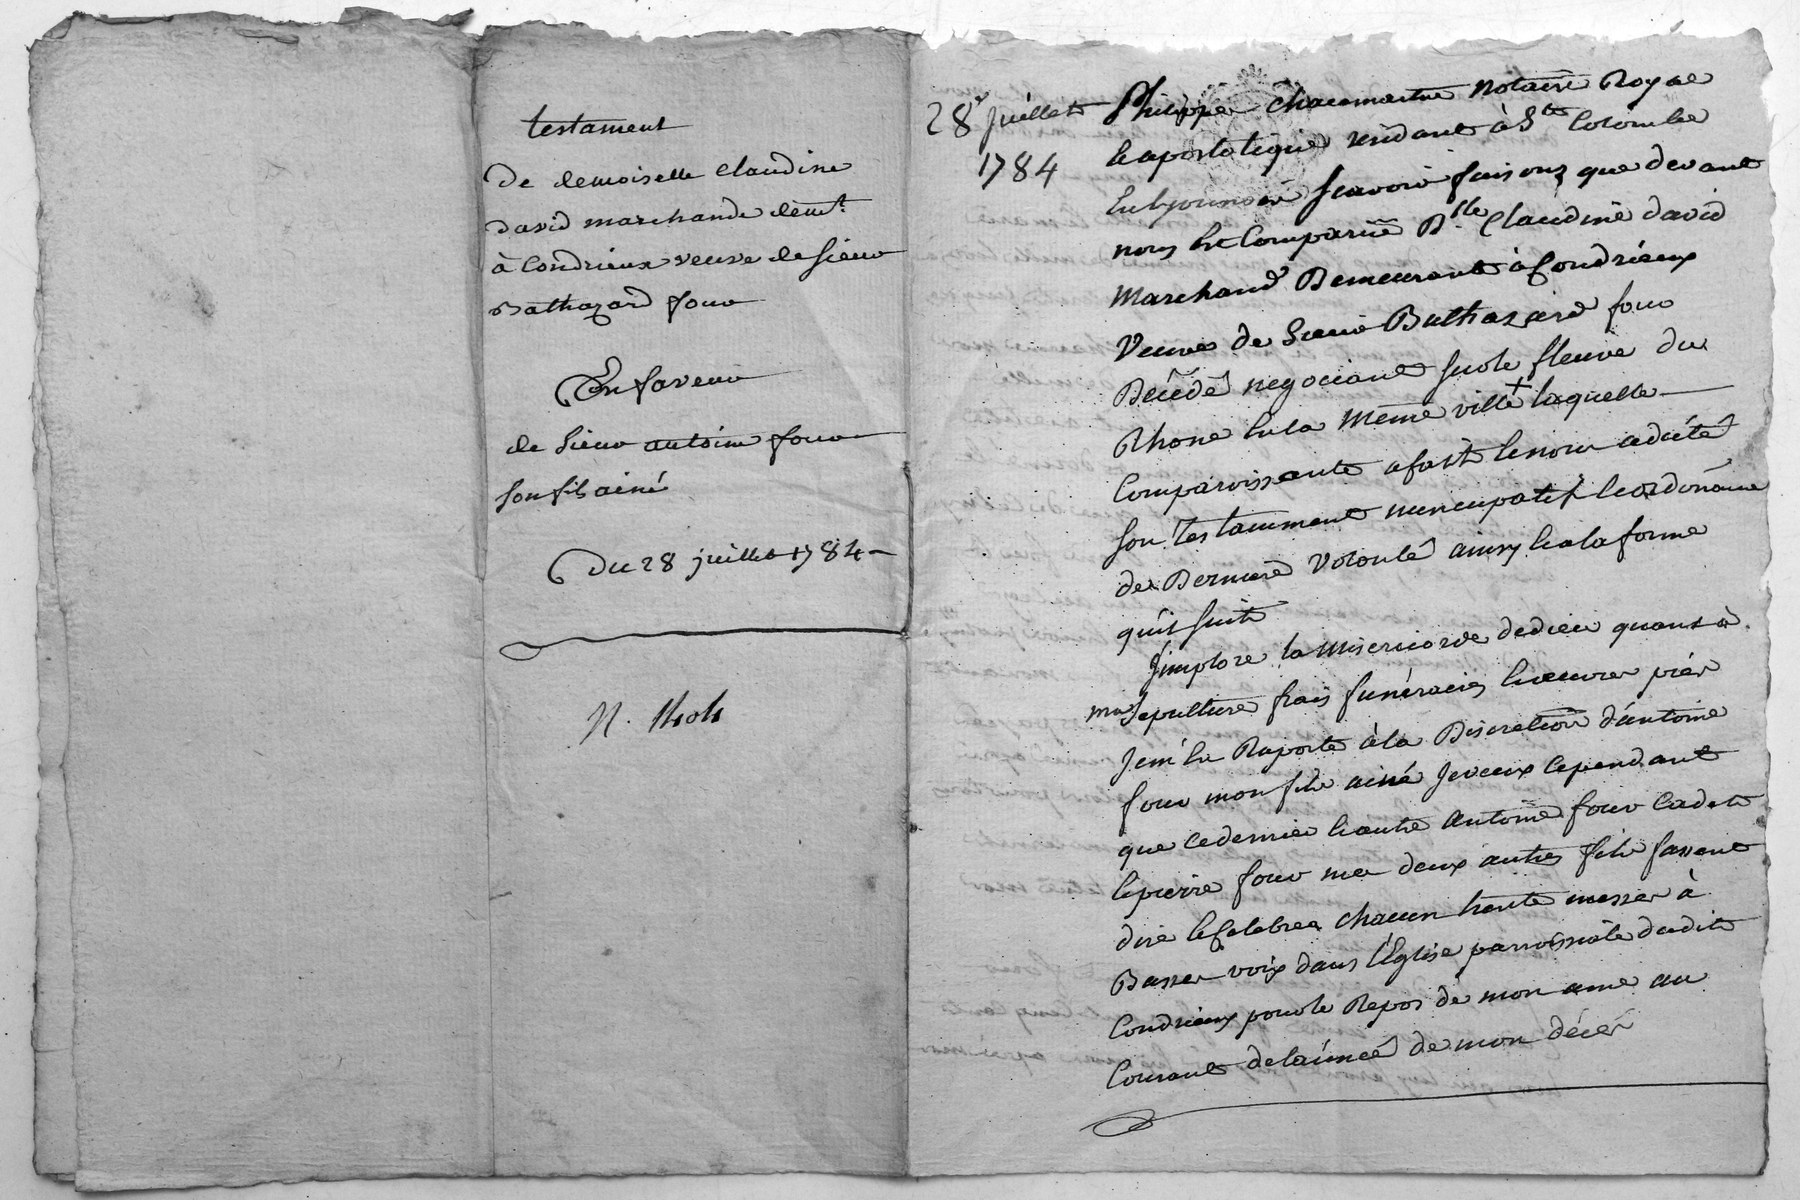 testament
De demoiselle claudine
david marchande demt.
à Condrieux veuve de sieur
Balthazard four
En faveur
de sieur antoine four
son fils ainé
Du 28 juillet 1784
28e Juillet
1784
Philippe notaire Royal
& apostolique residant à Ste Colombe
En Lyonnois scavoir faisons que devant
nous Est Comparüe Dlle Claudine david
Marchande Demeurante à Condrieux
Veuve de Sieur Balthazard four
Décédé negociant sur le fleuve du
Rhone En la même ville laquelle
Comparoissante a fait & dicté
son testamment nuncupatif & ordonance
de Derniere volonté ainsy & a la forme
qui suit
J'implore la Misericorde de dieu quant à
ma sepulture frais funéraires & œuvres pies
J'em En Raporte à la Discretion d'antoine
four mon fils ainé Je veux Cependant
que ce dernier & autre Antoine four Cadet
& pierre four mes deux autres fils fassent
dire & Celebrer chacun trente messes à
Basses voix dans l'Église parroissiale dudit
Condrieux pour le Repos de mon ame au
Courant de l'année de mon décés